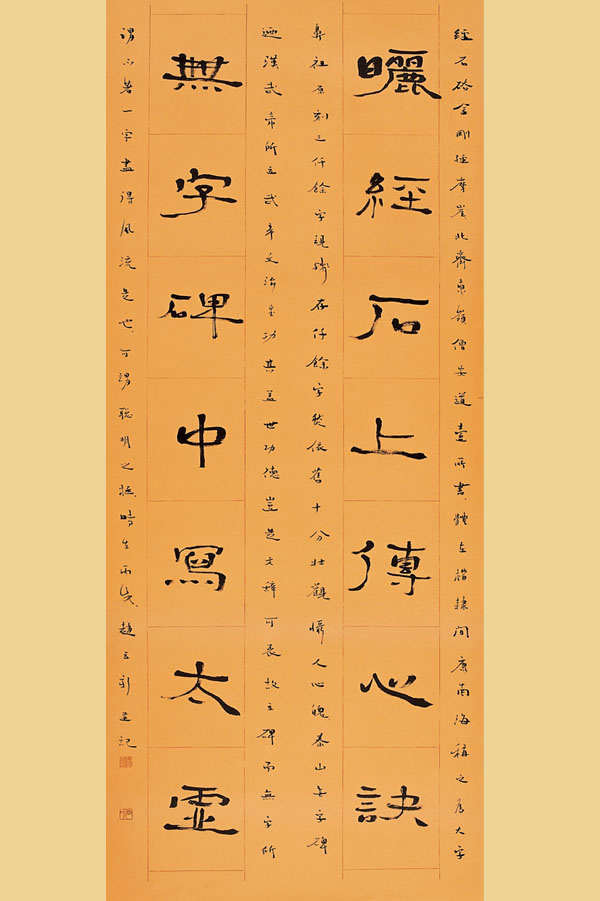 經石峪金剛經摩崖北齊東嶺僧安道壹所書體在楷隸間康南海稱之為大字
曬經石上傳心訣
鼻祖原刻三仟餘字現殘存仟餘字然依舊十分壯觀懾人心魄泰山無字碑
迺漢武帝所立武帝文治武功其蓋世功德豈是文辭可表故立碑而無字所
無字碑中寫太虛
謂不著一字盡得風流是也可謂聰明之極時在丙戌趙立新並記